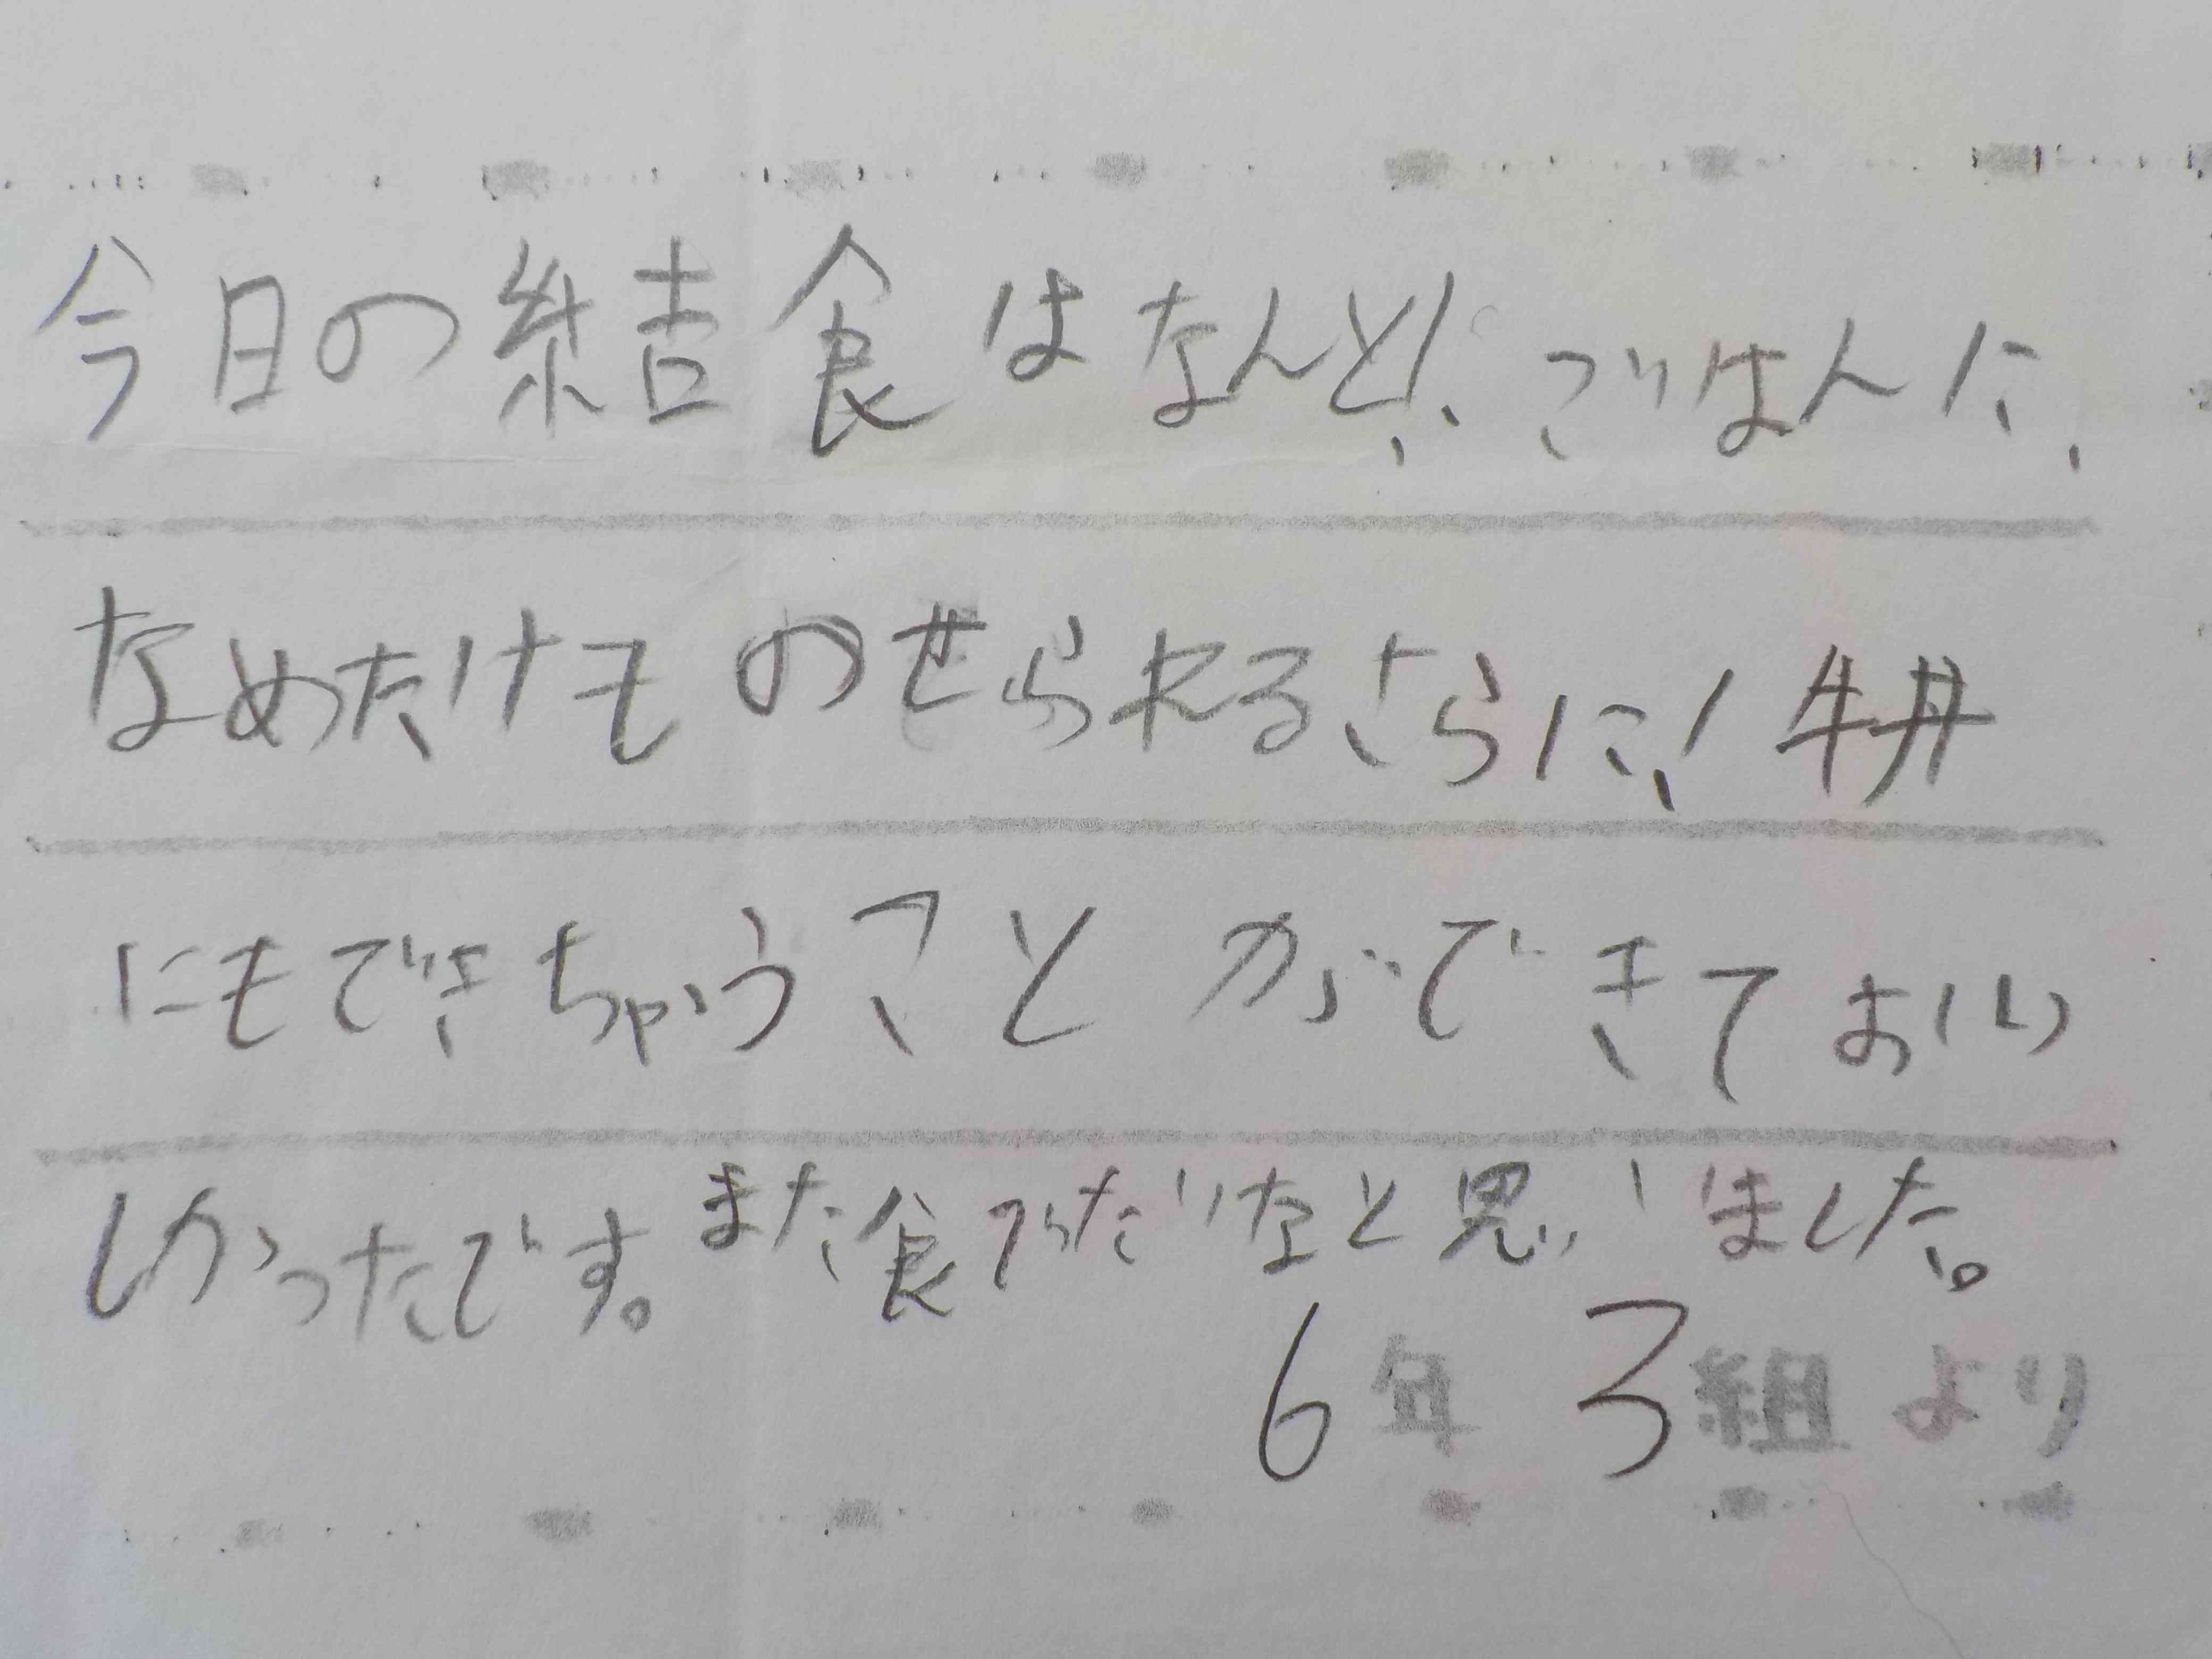 今日の結食はなんと!、ごはんに、
なめたけものせられるさらに!牛丼
にもできちゃうことができておい
しかったです。また食べたいなと思いました。
6年3組より